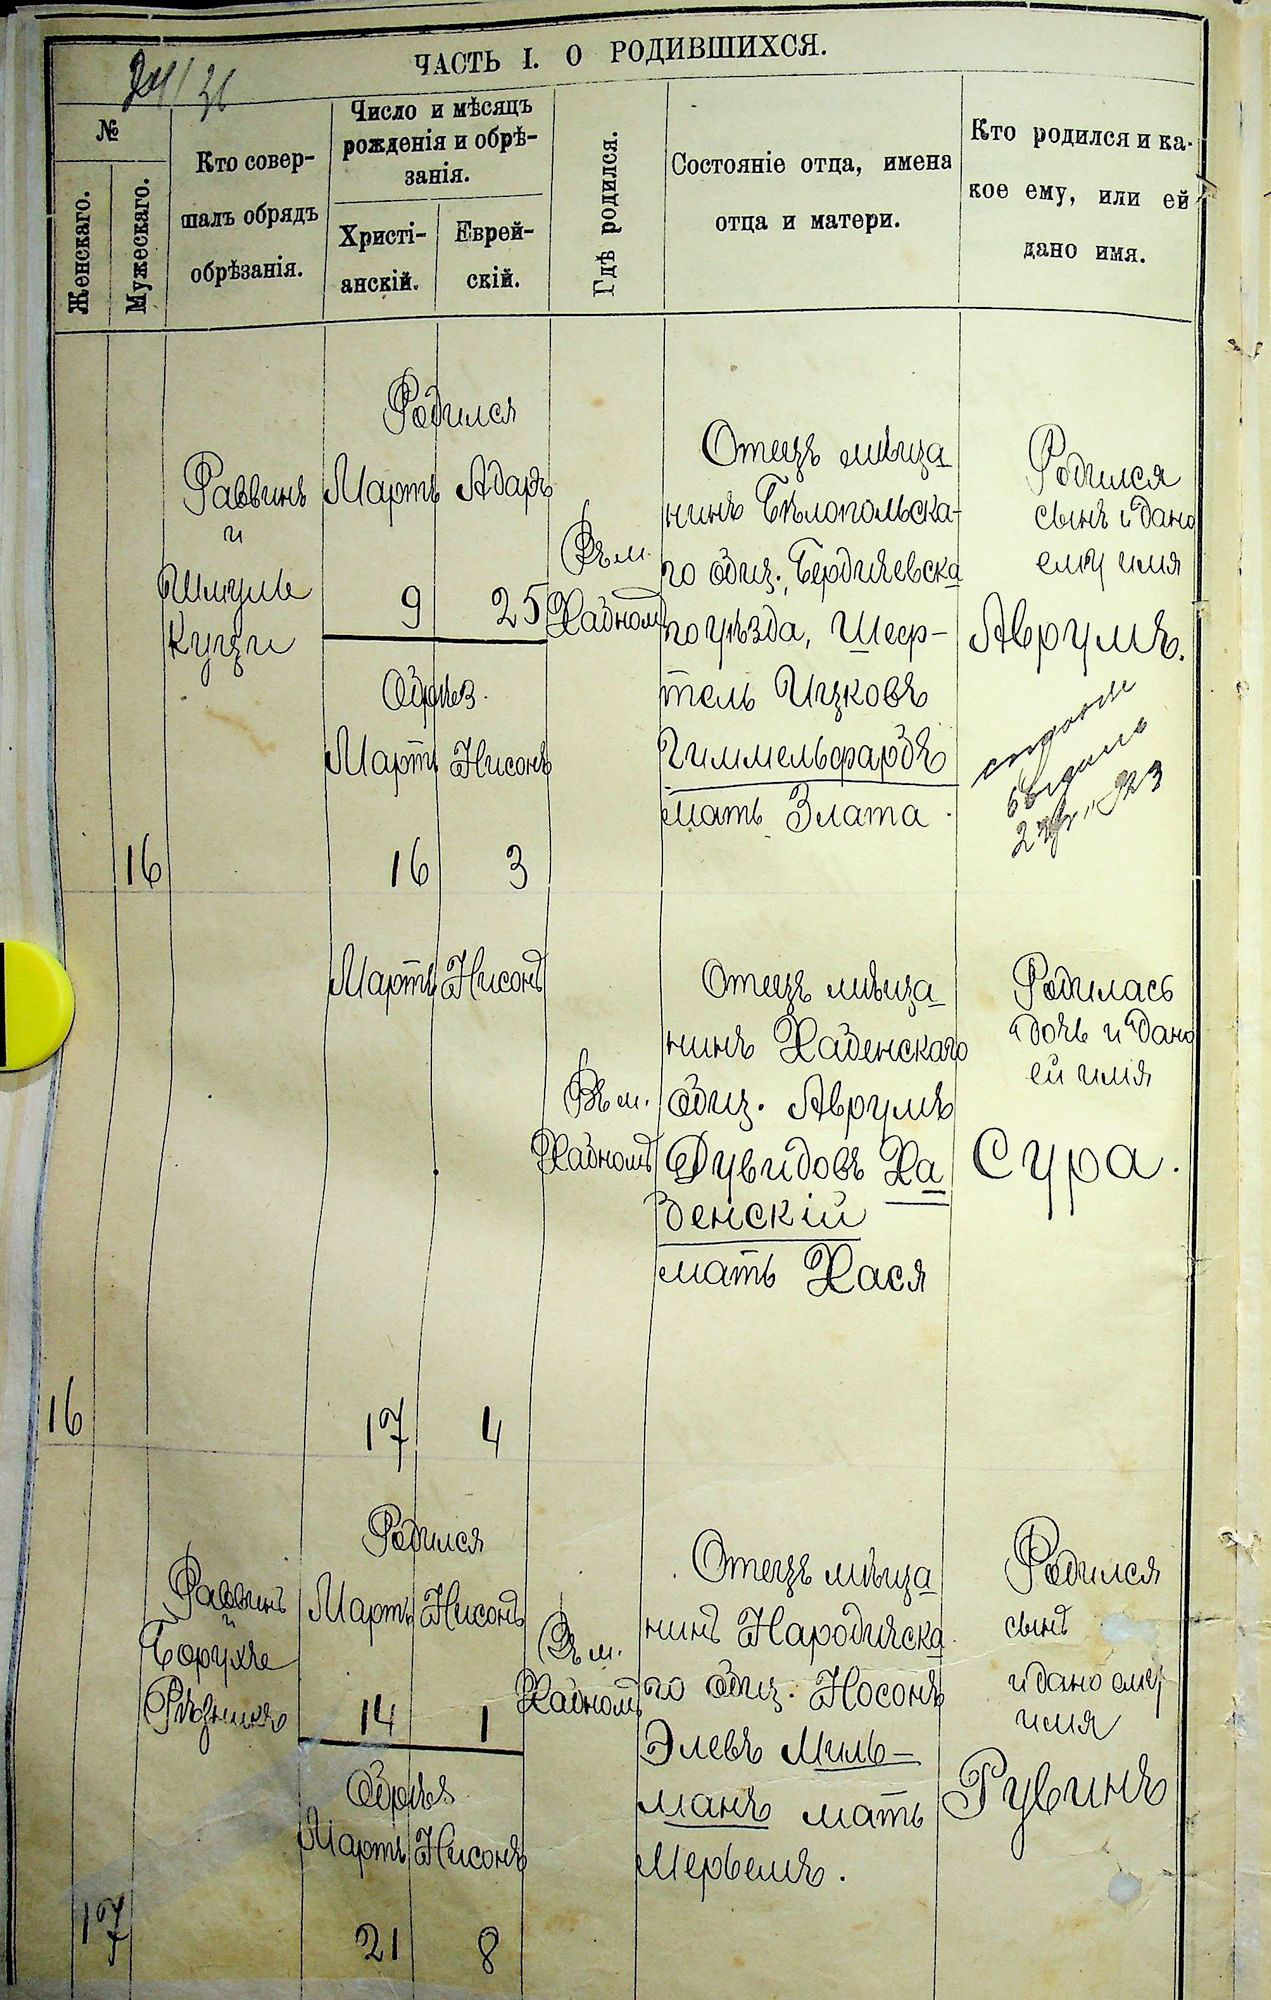 ЧАСТЬ I. О РОДИВШИХСЯ.
№
Женскаго.
Мужескаго.
Кто совер-
шалъ обрядъ
обрѣзанія.
Число и мѣсяцъ
рожденія и обрѣ-
занія.
Христі-
анскій.
Еврей-
скій.
Гдѣ родился.
Состояніе отца, имена
отца и матери.
Кто родился и ка-
кое ему, или ей
дано имя.
16
Раввинъ
и
Шмуль
Родился
Мартъ Адаръ
9 25
Обрѣз.
Мартъ Нисонъ
16 3
Въ м.
Хабномъ
Отецъ мѣща
нинъ Бѣлопольска-
го общ. Бердичевска
го уѣзда, Шеф-
тель Ицковъ
Гиммельфарбъ
мать Злата
Родился
сынъ и дано
ему имя
Аврумъ.
16
Мартъ Нисонъ
17 4
Въ м.
Хабномъ
Отецъ мѣща
нинъ Хабенскаго
общ. Аврумъ
Дувидовъ Ха
бенскій
мать Хася
Родилась
дочь и дано
ей имя
Сура.
17
Раввинъ
и
Борухъ
Рѣзникъ
Родился
Мартъ Нисонъ
14 1
Обрѣз
Мартъ Нисонъ
21 8
Въ м.
Хабномъ
Отецъ мѣща
нинъ Народичска
го общ. Носонъ
Элевъ Миль-
манъ мать
Меръемъ.
Родился
сынъ
и дано ему
имя
Рувинъ